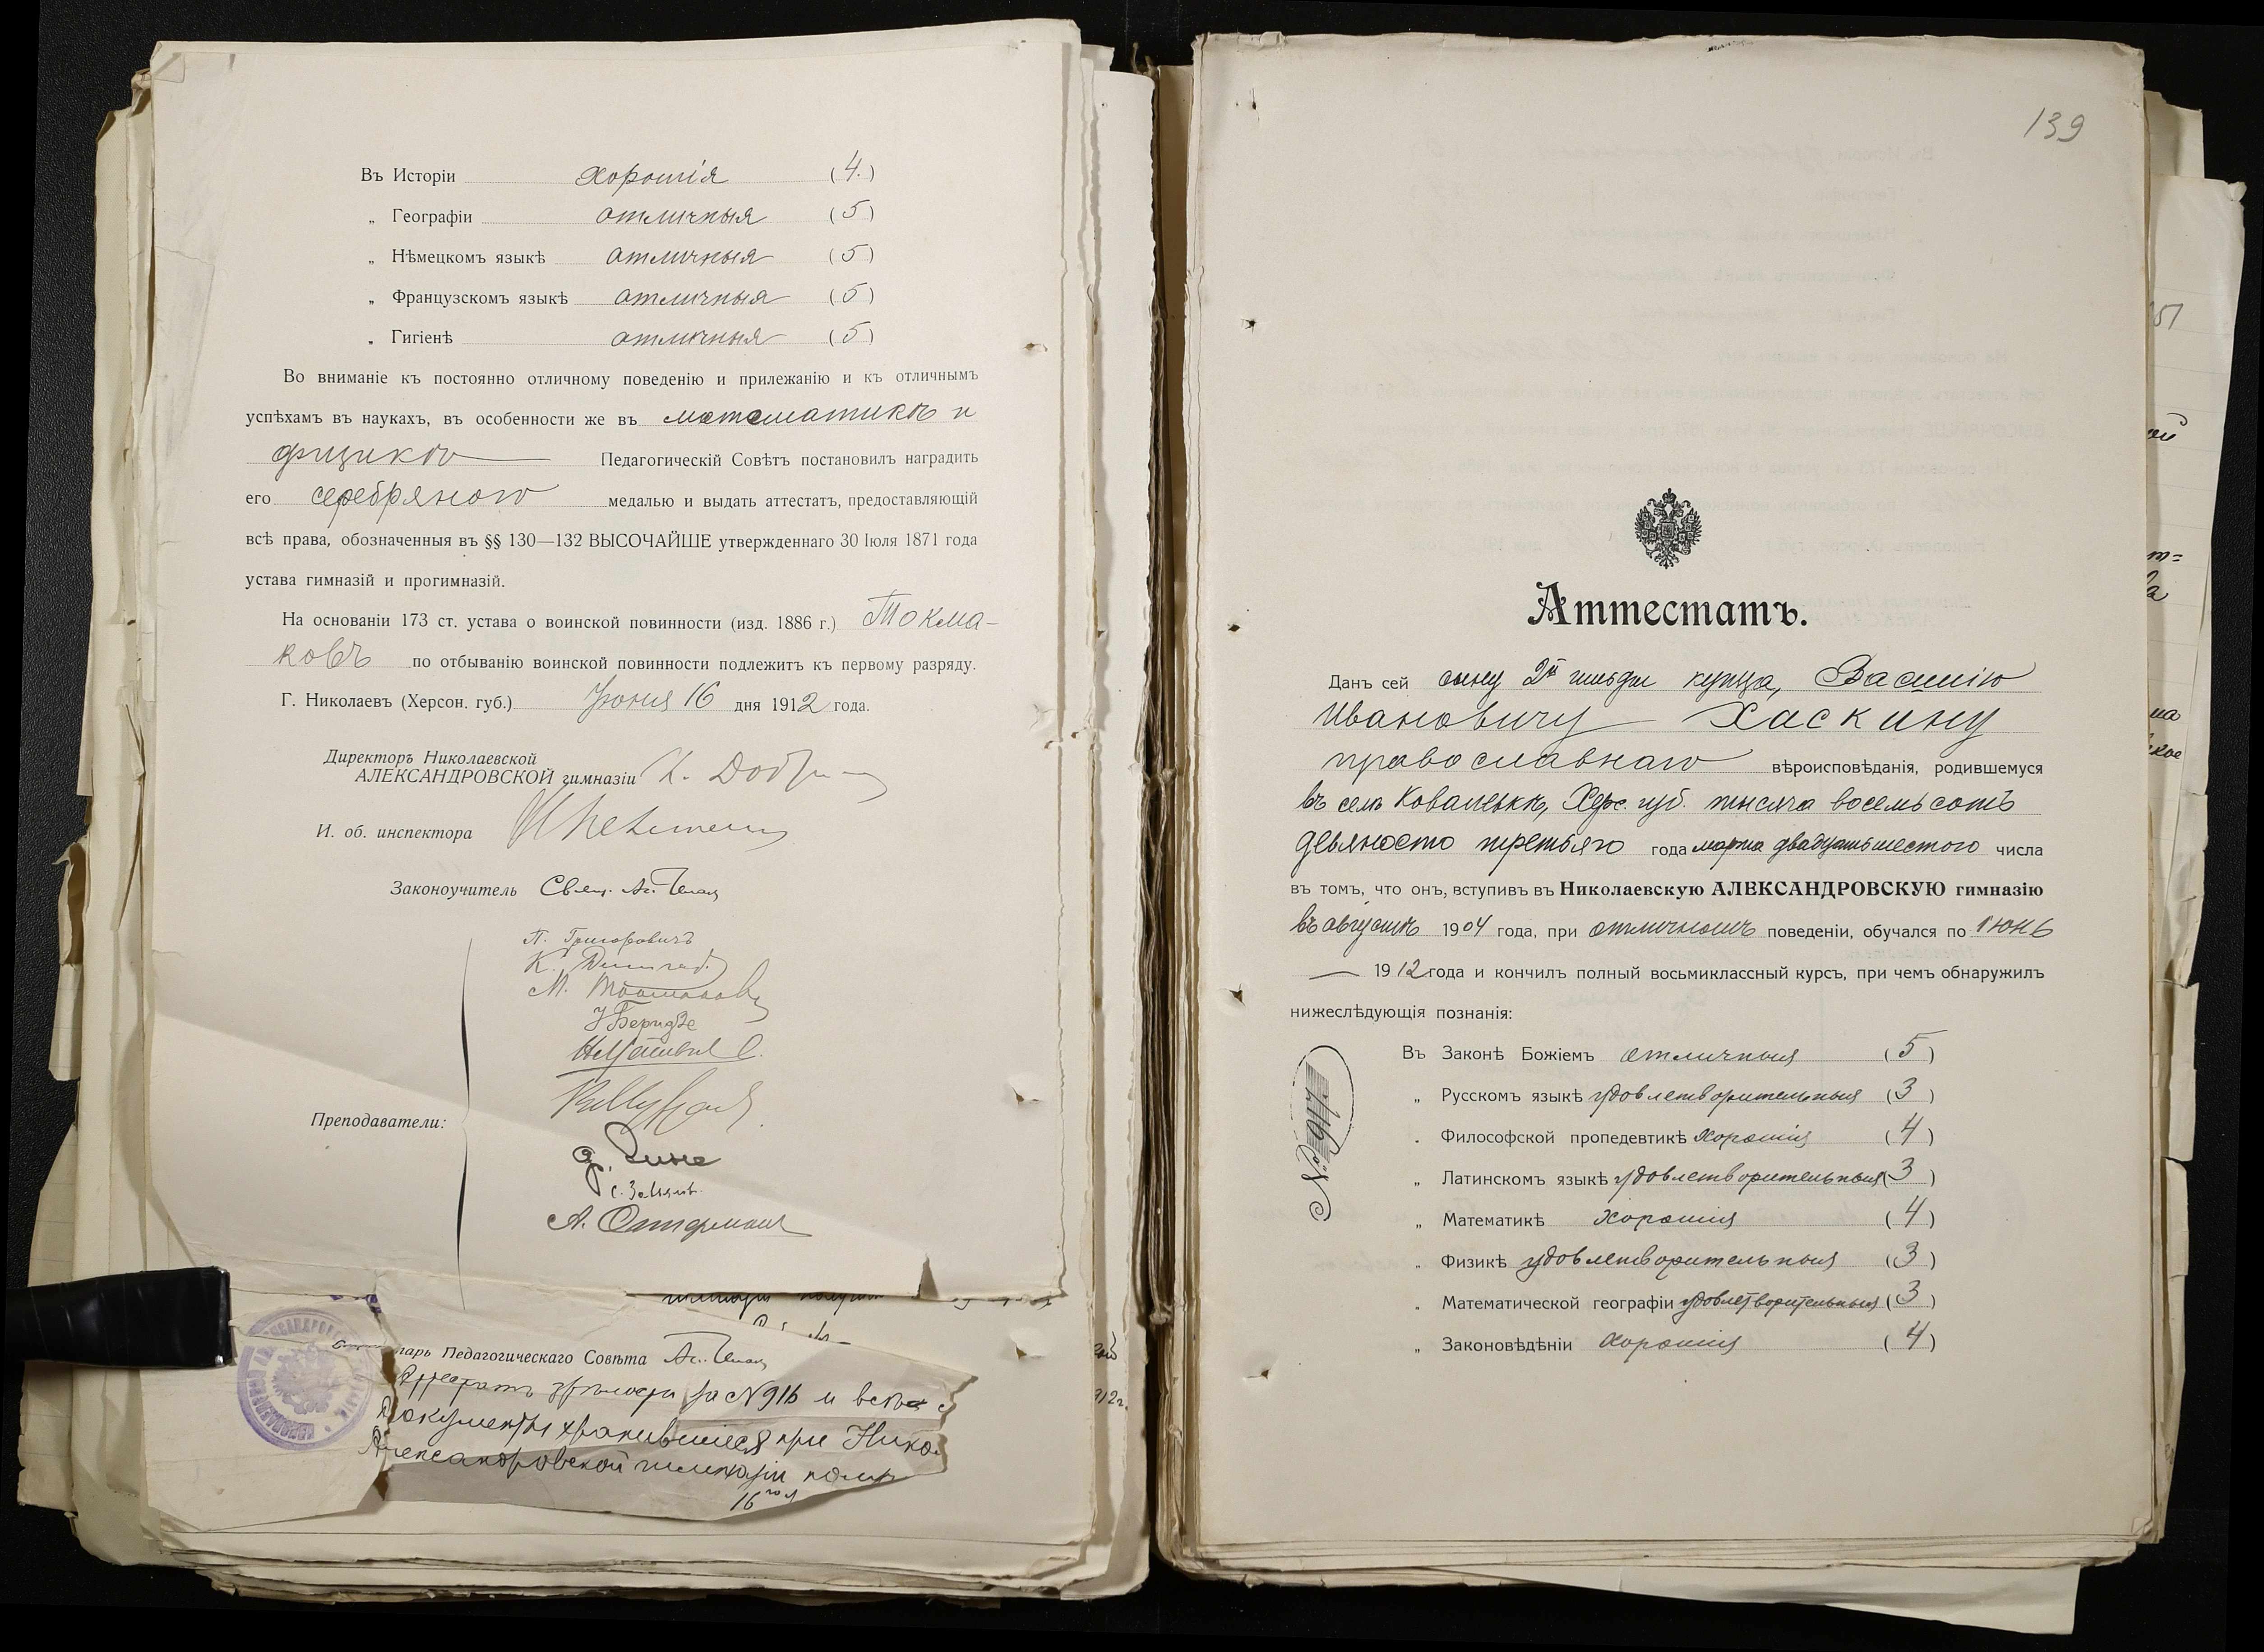 Въ Исторіи хорошія (4.)
„ Географіи отличныя (5)
„ Нѣмецкомъ языкѣ отличныя (5)
„ Французскомъ языкѣ отличныя (5)
„ Гигіенѣ отличныя (5)
Во вниманіе къ постоянно отличному поведенію и прилежанію и къ отличнымъ
успѣхамъ въ наукахъ, въ особенности же въ математикѣ и
физикѣ Педагогическій Совѣтъ постановилъ наградить
его серебряною медалью и выдать аттестатъ, предоставляющій
всѣ права, обозначенныя въ §§ 130—132 ВЫСОЧАЙШЕ утвержденнаго 30 Іюля 1871 года
устава гимназій и прогимназій.
На основаніи 173 ст. устава о воинской повинности (изд. 1886 г.) Токма-
ковъ по отбыванію воинской повинности подлежитъ къ первому разряду.
Г. Николаевъ (Херсон. губ.) Іюня 16 дня 1912 года.
Директоръ Николаевской
АЛЕКСАНДРОВСКОЙ гимназіи
И. об. инспектора
Законоучитель Свящ.
П. Григоровичъ
К.
М.
Беридзе
Преподаватели:
А. Оттерманъ
Педагогическаго Совѣта
Аттестатъ зрѣлости за №916 и всѣ
документы хранившіеся при Нико
Александровской гимназіи
16
139
Аттестатъ.
Данъ сей сыну 2й гильдіи купца, Василію
Ивановичу Хаскину
православнаго вѣроисповѣданія, родившемуся
въ селѣ Ковалевкѣ, Херс. губ. тысяча восемьсотъ
девяносто третьяго года марта двадцать шестого числа
въ томъ, что онъ, вступивъ въ Николаевскую АЛЕКСАНДРОВСКУЮ гимназію
въ августѣ 1904 года, при отличномъ поведеніи, обучался по іюнь
— 1912 года и кончилъ полный восьмиклассный курсъ, при чемъ обнаружилъ
нижеслѣдующія познанія:
№ 917
Въ Законѣ Божіемъ отличныя (5)
„ Русскомъ языкѣ удовлетворительныя (3)
„ Философской пропедевтикѣ хорошія (4)
„ Латинскомъ языкѣ удовлетворительныя (3)
„ Математикѣ хорошія (4)
„ Физикѣ удовлетворительныя (3)
„ Математической географіи удовлетворительныя (3)
„ Законовѣдѣніи хорошія (4)